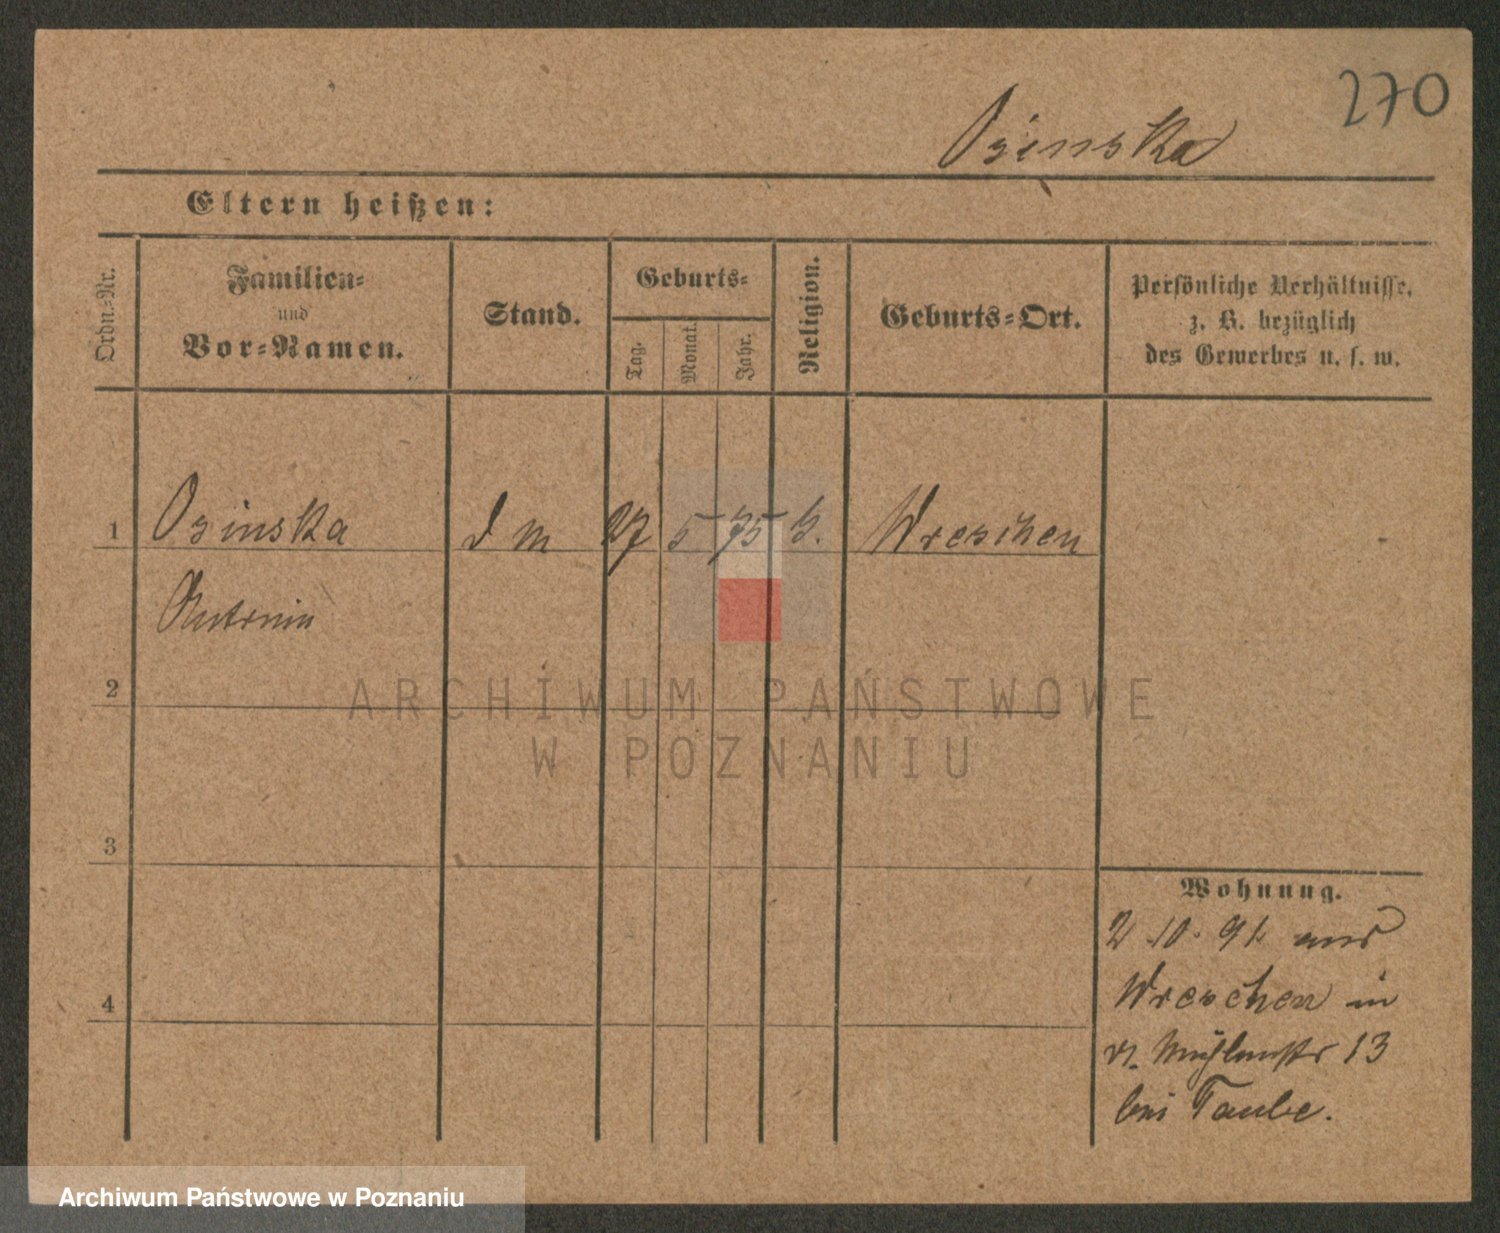 270
Osinska
Eltern heißen:
Ordn.-Nr.
Familien-
und
Vor-Namen.
Stand.
Geburts-
Tag.
Monat.
Jahr.
Religion.
Geburts-Ort.
Persönliche Verhältnisse,
z. B. bezüglich
des Gewerbes u. s. w.
1 Osinska d m 27 5 75 k. Wreschen
Antonia
2
3
4
Wohnung.
2 10. 91. aus
Wreschen in
Mühlenstr 13
bei Taube.
ARCHIWUM PAŃSTWOWE
W POZNANIU
Archiwum Państwowe w Poznaniu